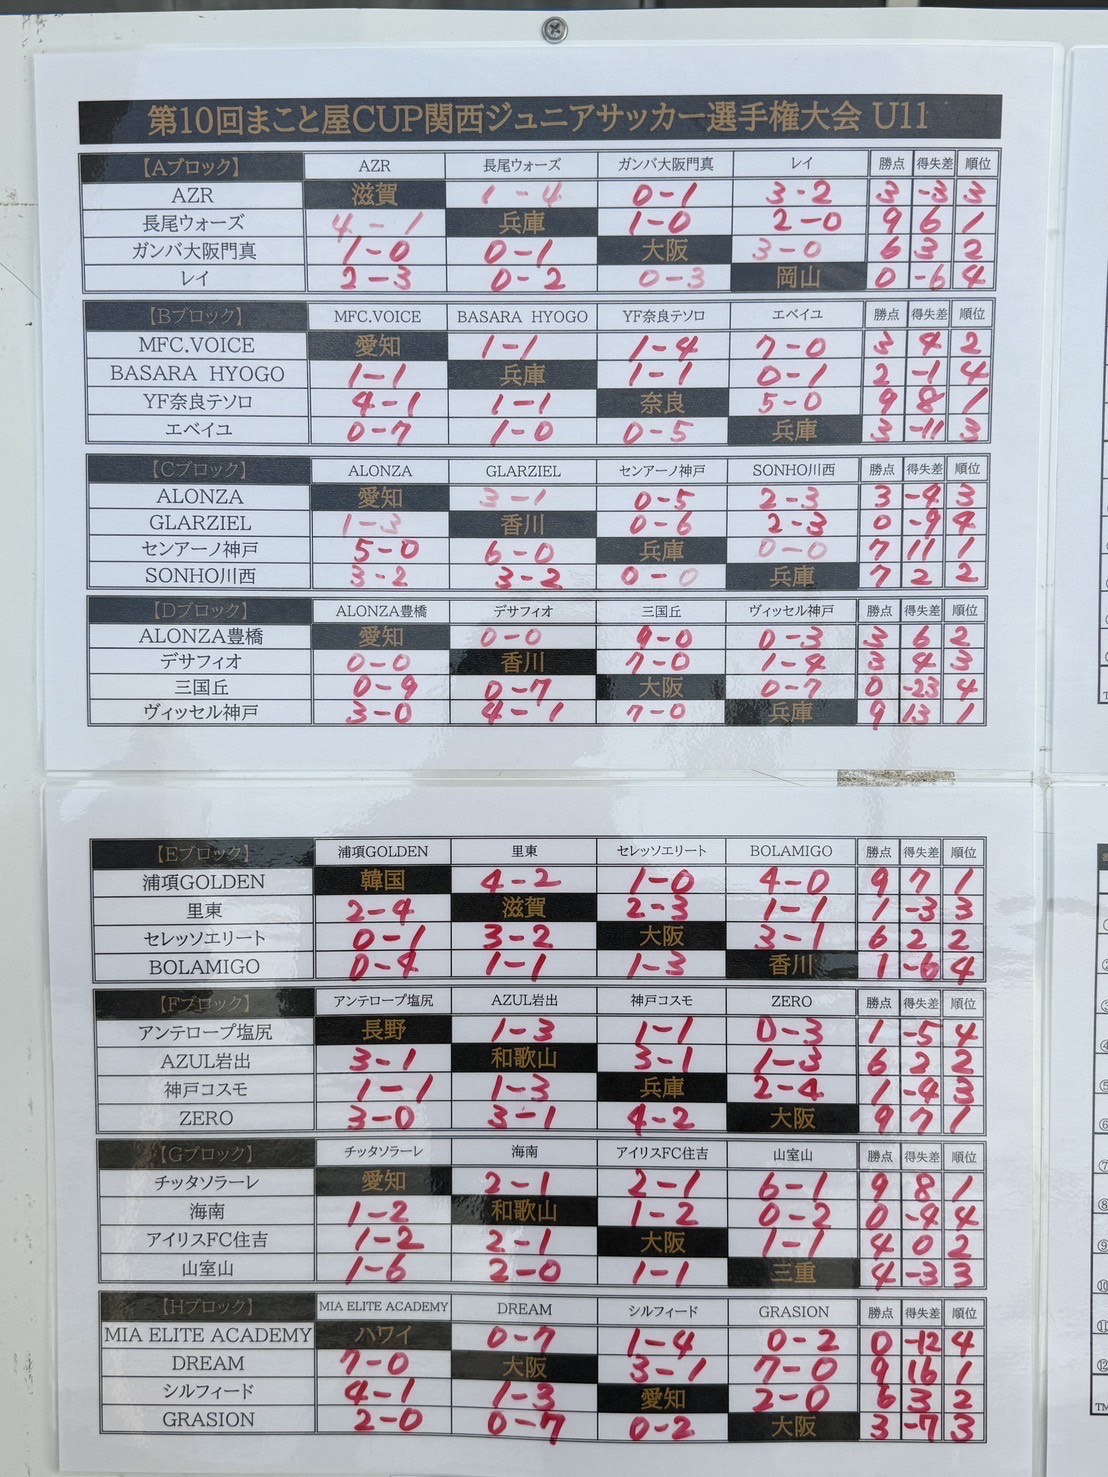 第10回まこと屋CUP関西ジュニアサッカー選手権大会 U11
【Aブロック】 AZR 長尾ウォーズ ガンバ大阪門真 レイ 勝点 得失差 順位
AZR 滋賀 1-4 0-1 3-2 3 -3 3
長尾ウォーズ 4-1 兵庫 1-0 2-0 9 6 1
ガンバ大阪門真 1-0 0-1 大阪 3-0 6 3 2
レイ 2-3 0-2 0-3 岡山 0 -6 4
【Bブロック】 MFC.VOICE BASARA HYOGO YF奈良テソロ エベイユ 勝点 得失差 順位
MFC.VOICE 愛知 1-1 1-4 7-0 3 4 2
BASARA HYOGO 1-1 兵庫 1-1 0-1 2 -1 4
YF奈良テソロ 4-1 1-1 奈良 5-0 9 8 1
エベイユ 0-7 1-0 0-5 兵庫 3 -11 3
【Cブロック】 ALONZA GLARZIEL センアーノ神戸 SONHO川西 勝点 得失差 順位
ALONZA 愛知 3-1 0-5 2-3 3 -4 3
GLARZIEL 1-3 香川 0-6 2-3 0 -9 4
センアーノ神戸 5-0 6-0 兵庫 0-0 7 11 1
SONHO川西 3-2 3-2 0-0 兵庫 7 2 2
【Dブロック】 ALONZA豊橋 デサフィオ 三国丘 ヴィッセル神戸 勝点 得失差 順位
ALONZA豊橋 愛知 0-0 9-0 0-3 3 6 2
デサフィオ 0-0 香川 7-0 1-4 3 4 3
三国丘 0-9 0-7 大阪 0-7 0 -23 4
ヴィッセル神戸 3-0 4-1 7-0 兵庫 9 13 1
【Eブロック】 浦項GOLDEN 里東 セレッソエリート BOLAMIGO 勝点 得失差 順位
浦項GOLDEN 韓国 4-2 1-0 4-0 9 7 1
里東 2-4 滋賀 2-3 1-1 1 -3 3
セレッソエリート 0-1 3-2 大阪 3-1 6 2 2
BOLAMIGO 0-4 1-1 1-3 香川 1 -6 4
【Fブロック】 アンテロープ塩尻 AZUL岩出 神戸コスモ ZERO 勝点 得失差 順位
アンテロープ塩尻 長野 1-3 1-1 0-3 1 -5 4
AZUL岩出 3-1 和歌山 3-1 1-3 6 2 2
神戸コスモ 1-1 1-3 兵庫 2-4 1 -4 3
ZERO 3-0 3-1 4-2 大阪 9 7 1
【Gブロック】 チッタソラーレ 海南 アイリスFC住吉 山室山 勝点 得失差 順位
チッタソラーレ 愛知 2-1 2-1 6-1 9 8 1
海南 1-2 和歌山 1-2 0-2 0 -4 4
アイリスFC住吉 1-2 2-1 大阪 1-1 4 0 2
山室山 1-6 2-0 1-1 三重 4 -3 3
【Hブロック】 MIA ELITE ACADEMY DREAM シルフィード GRASION 勝点 得失差 順位
MIA ELITE ACADEMY ハワイ 0-7 1-4 0-2 0 -12 4
DREAM 7-0 大阪 3-1 7-0 9 16 1
シルフィード 4-1 1-3 愛知 2-0 6 3 2
GRASION 2-0 0-7 0-2 大阪 3 -7 3